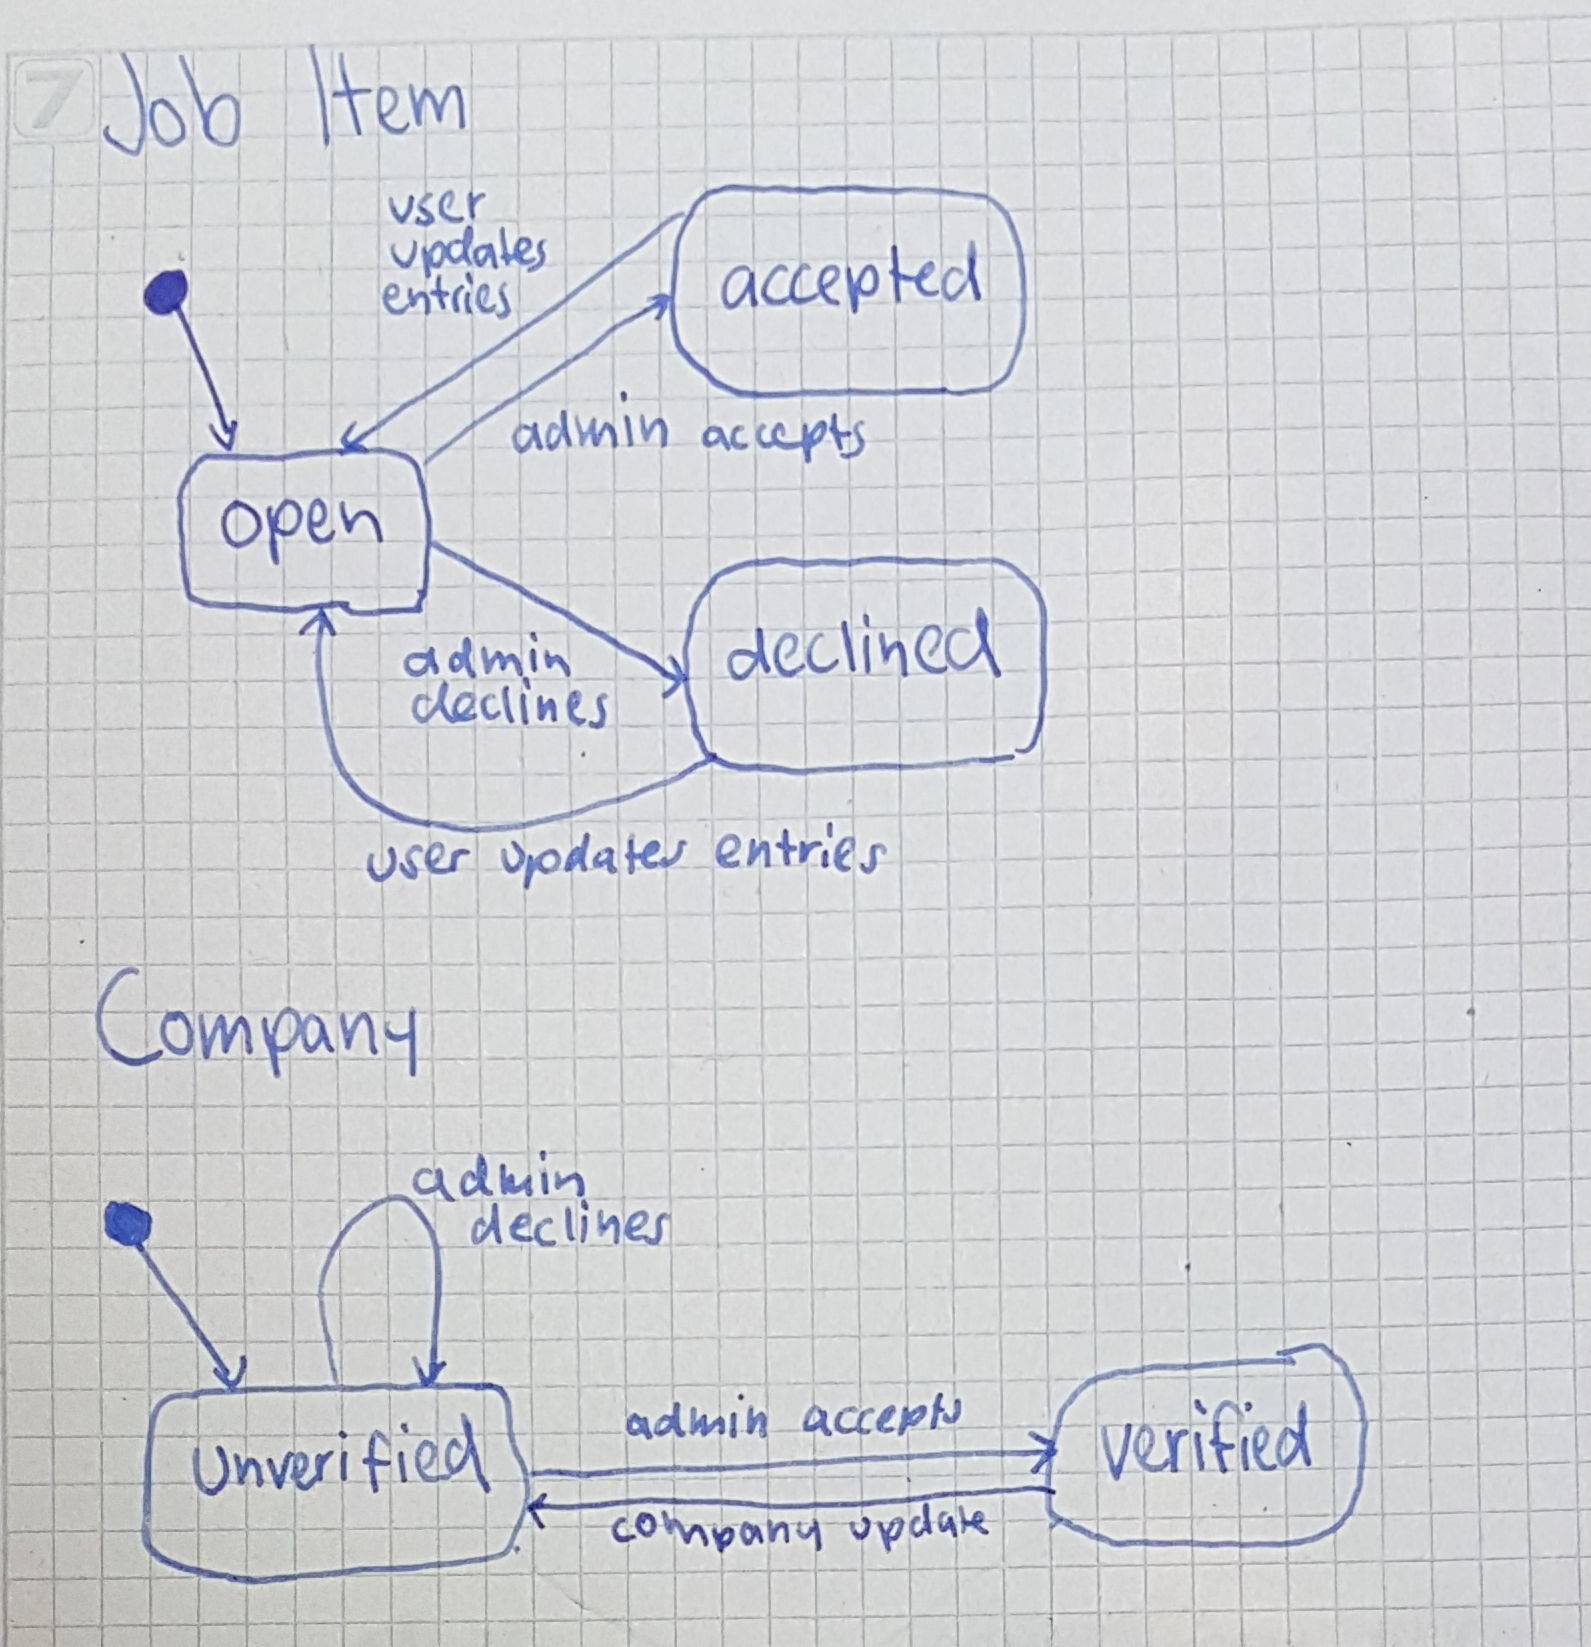 7
Job Item
user
updates
entries
accepted
admin accepts
open
declined
admin
declines
user updates entries
Company
admin
declines
unverified
admin accepts
verified
company update